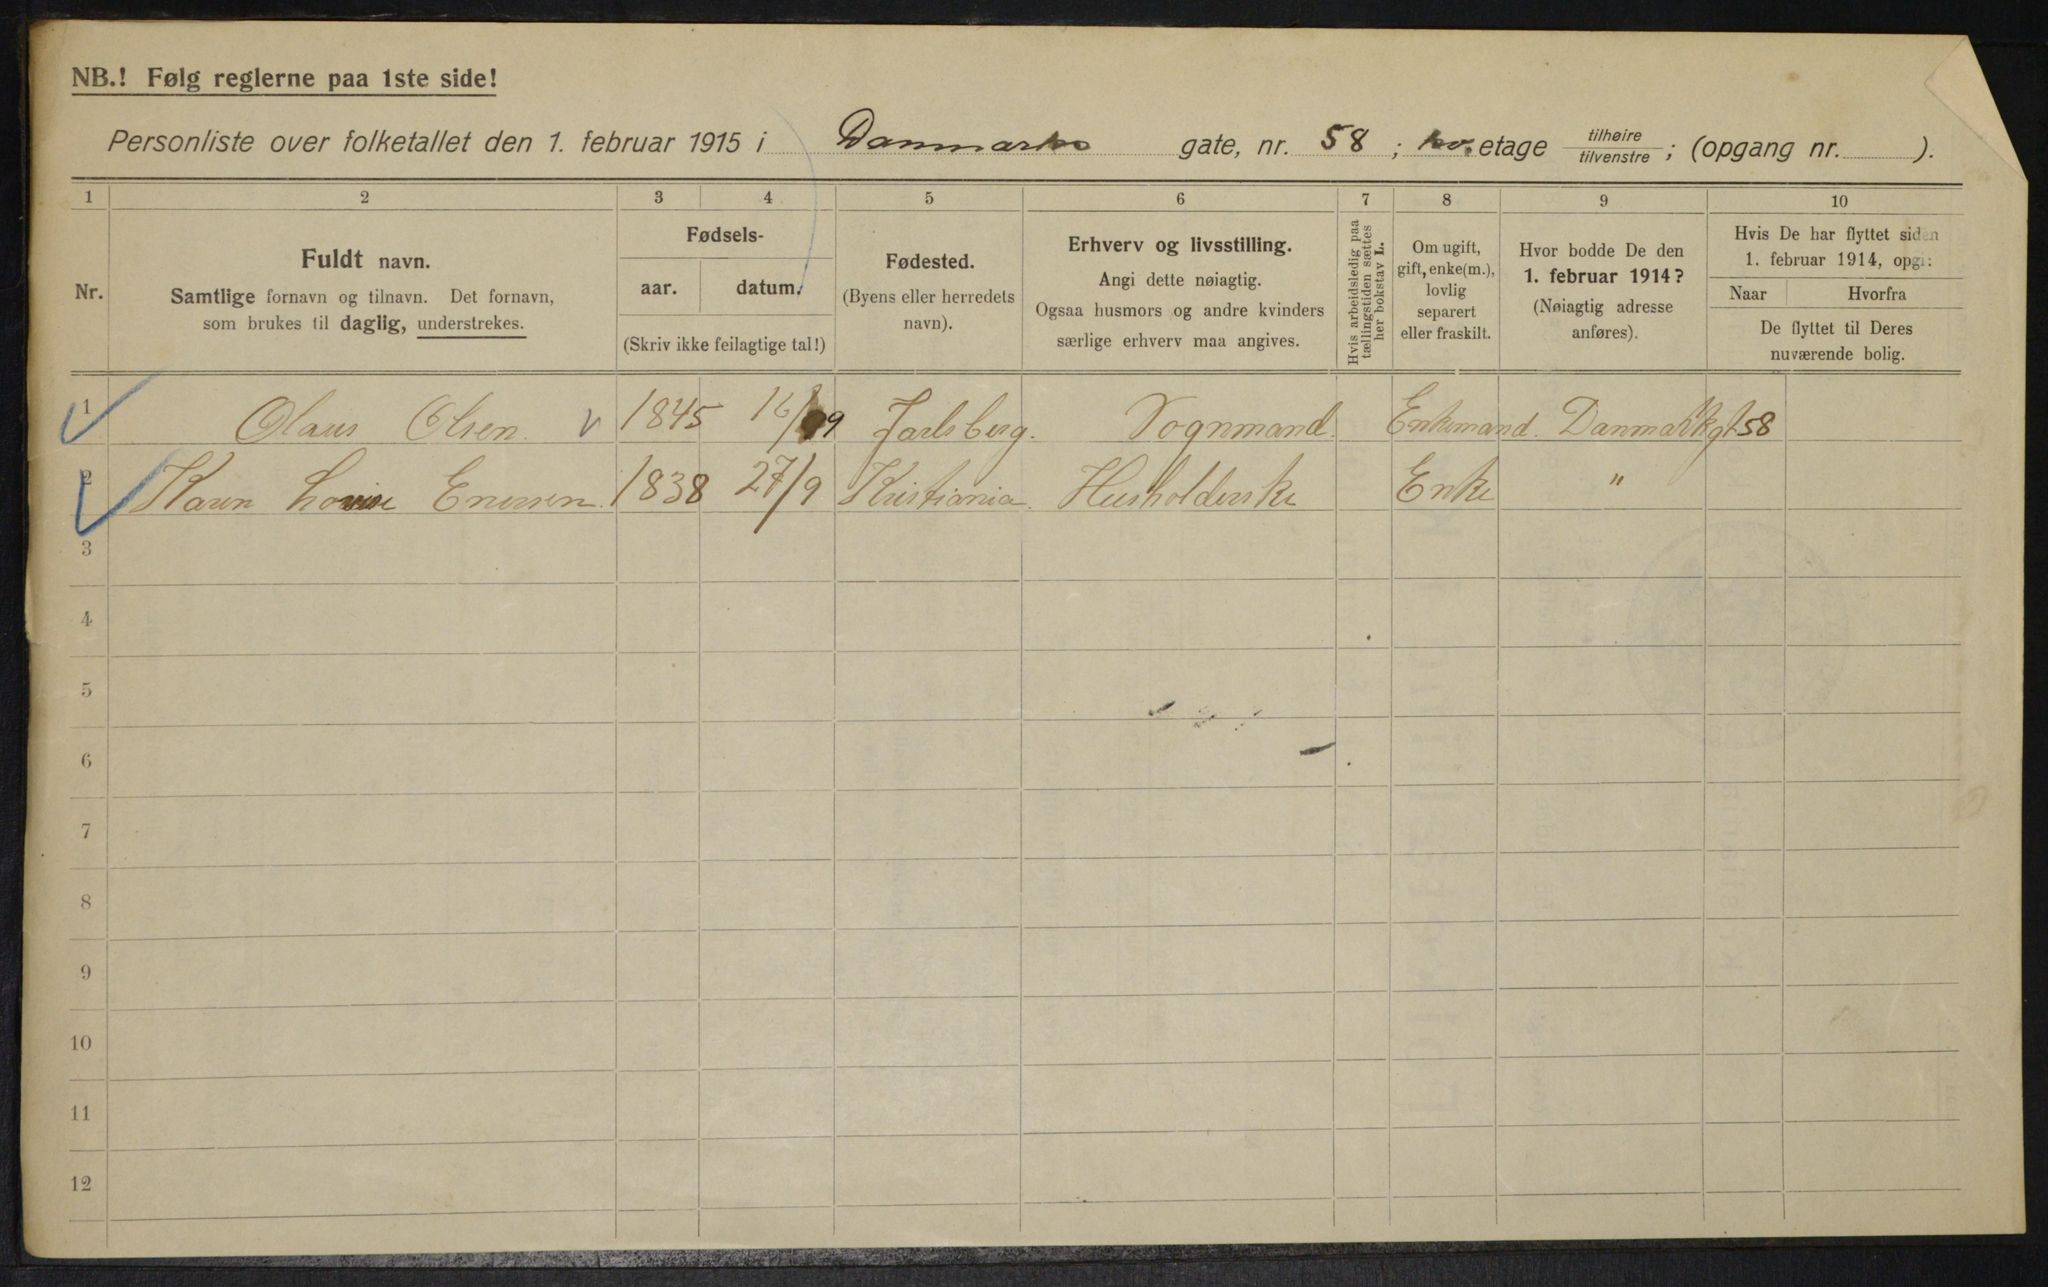 NB.! Følg reglerne paa 1ste side!
Personliste over folketallet den 1. februar 1915 i Danmarks gate, nr. 58 ; kv. etage tilhøire / tilvenstre ; (opgang nr. ).
1 2 3 4 5 6 7 8 9 10
Nr.
Fuldt navn.
Samtlige fornavn og tilnavn. Det fornavn,
som brukes til daglig, understrekes.
Fødsels-
aar. datum.
(Skriv ikke feilagtige tal!)
Fødested.
(Byens eller herredets
navn).
Erhverv og livsstilling.
Angi dette nøiagtig.
Ogsaa husmors og andre kvinders
særlige erhverv maa angives.
Hvis arbeidsledig paa
tællingstiden sættes
her bokstav L.
Om ugift,
gift, enke(m.),
lovlig
separert
eller fraskilt.
Hvor bodde De den
1. februar 1914?
(Nøiagtig adresse
anføres).
Hvis De har flyttet siden
1. februar 1914, opgi:
Naar Hvorfra
De flyttet til Deres
nuværende bolig.
1 Olaus Olsen 1845 16/9 Jarlsberg. Vognmand. Enkemand. Danmarkgt 58
2 Karen Lovise Enersen. 1838 27/9 Kristiania. Husholderske Enke "
3
4
5
6
7
8
9
10
11
12